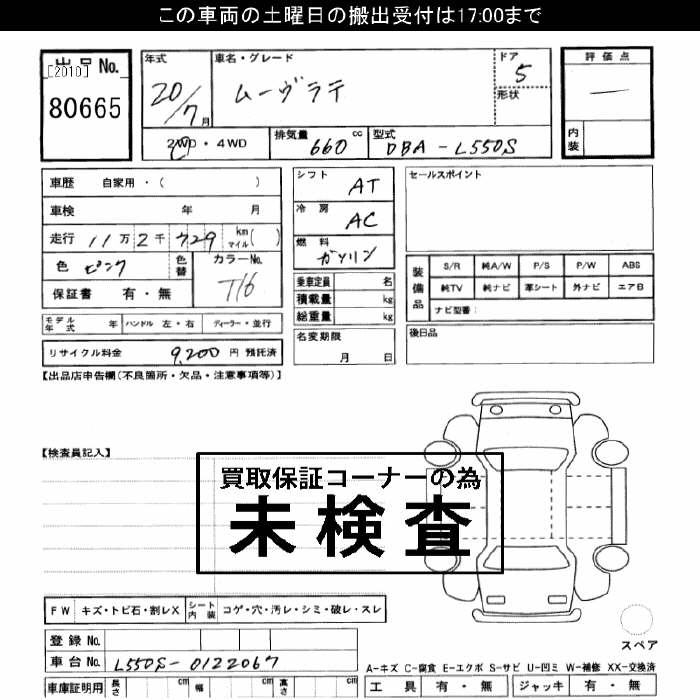 この車両の土曜日の搬出受付は17:00まで
出品No.
[2010]
80665
年式
20/7月
車名・グレード
ムーヴラテ
ドア
5
形状
評価点
一
内装
2WD・4WD
排気量 660 cc
型式 DBA-L550S
車歴 自家用・( )
車検 年 月
走行 11万2千729 km マイル( )
色 ピンク 色替
カラーNo. T16
保証書 有・無
シフト AT
冷房 AC
燃料 ガソリン
乗車定員 名
積載量 kg
総重量 kg
名変期限
月 日
セールスポイント
装備品
S/R 純A/W P/S P/W ABS
純TV 純ナビ 革シート 外ナビ エアB
ナビ型番:
後日品
モデル年式 年 ハンドル 左・右 ディーラー・並行
リサイクル料金 9,200 円 預託済
【出品店申告欄(不良箇所・欠品・注意事項等)】
【検査員記入】
買取保証コーナーの為
未検査
FW キズ・トビ石・割レX シート内装 コゲ・穴・汚レ・シミ・破レ・スレ
登録No.
車台No. L550S-0122067
車庫証明用 長さ cm 幅 cm 高さ cm
スペア
A-キズ C-腐食 E-エクボ S-サビ U-凹ミ W-補修 XX-交換済
工具 有・無 ジャッキ 有・無